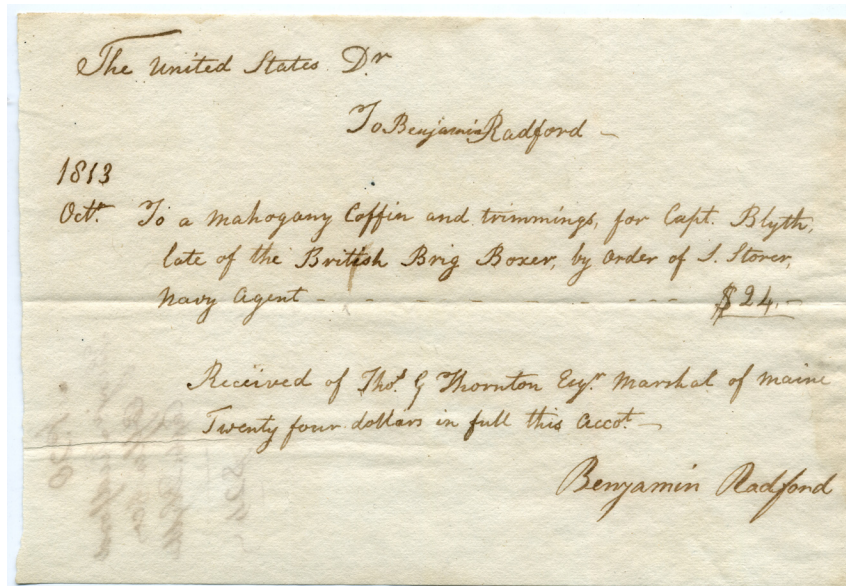 The United States Dr
To Benjamin Radford —
1813
Octr. To a mahogany Coffin and trimmings, for Capt. Blyth,
late of the British Brig Boxer, by order of S. Storer,
Navy Agent - - - - - - - - - - $24.–
Received of Thos. G Thornton Esqr. Marshal of Maine
Twenty four dollars in full this Accot. —
Benjamin Radford